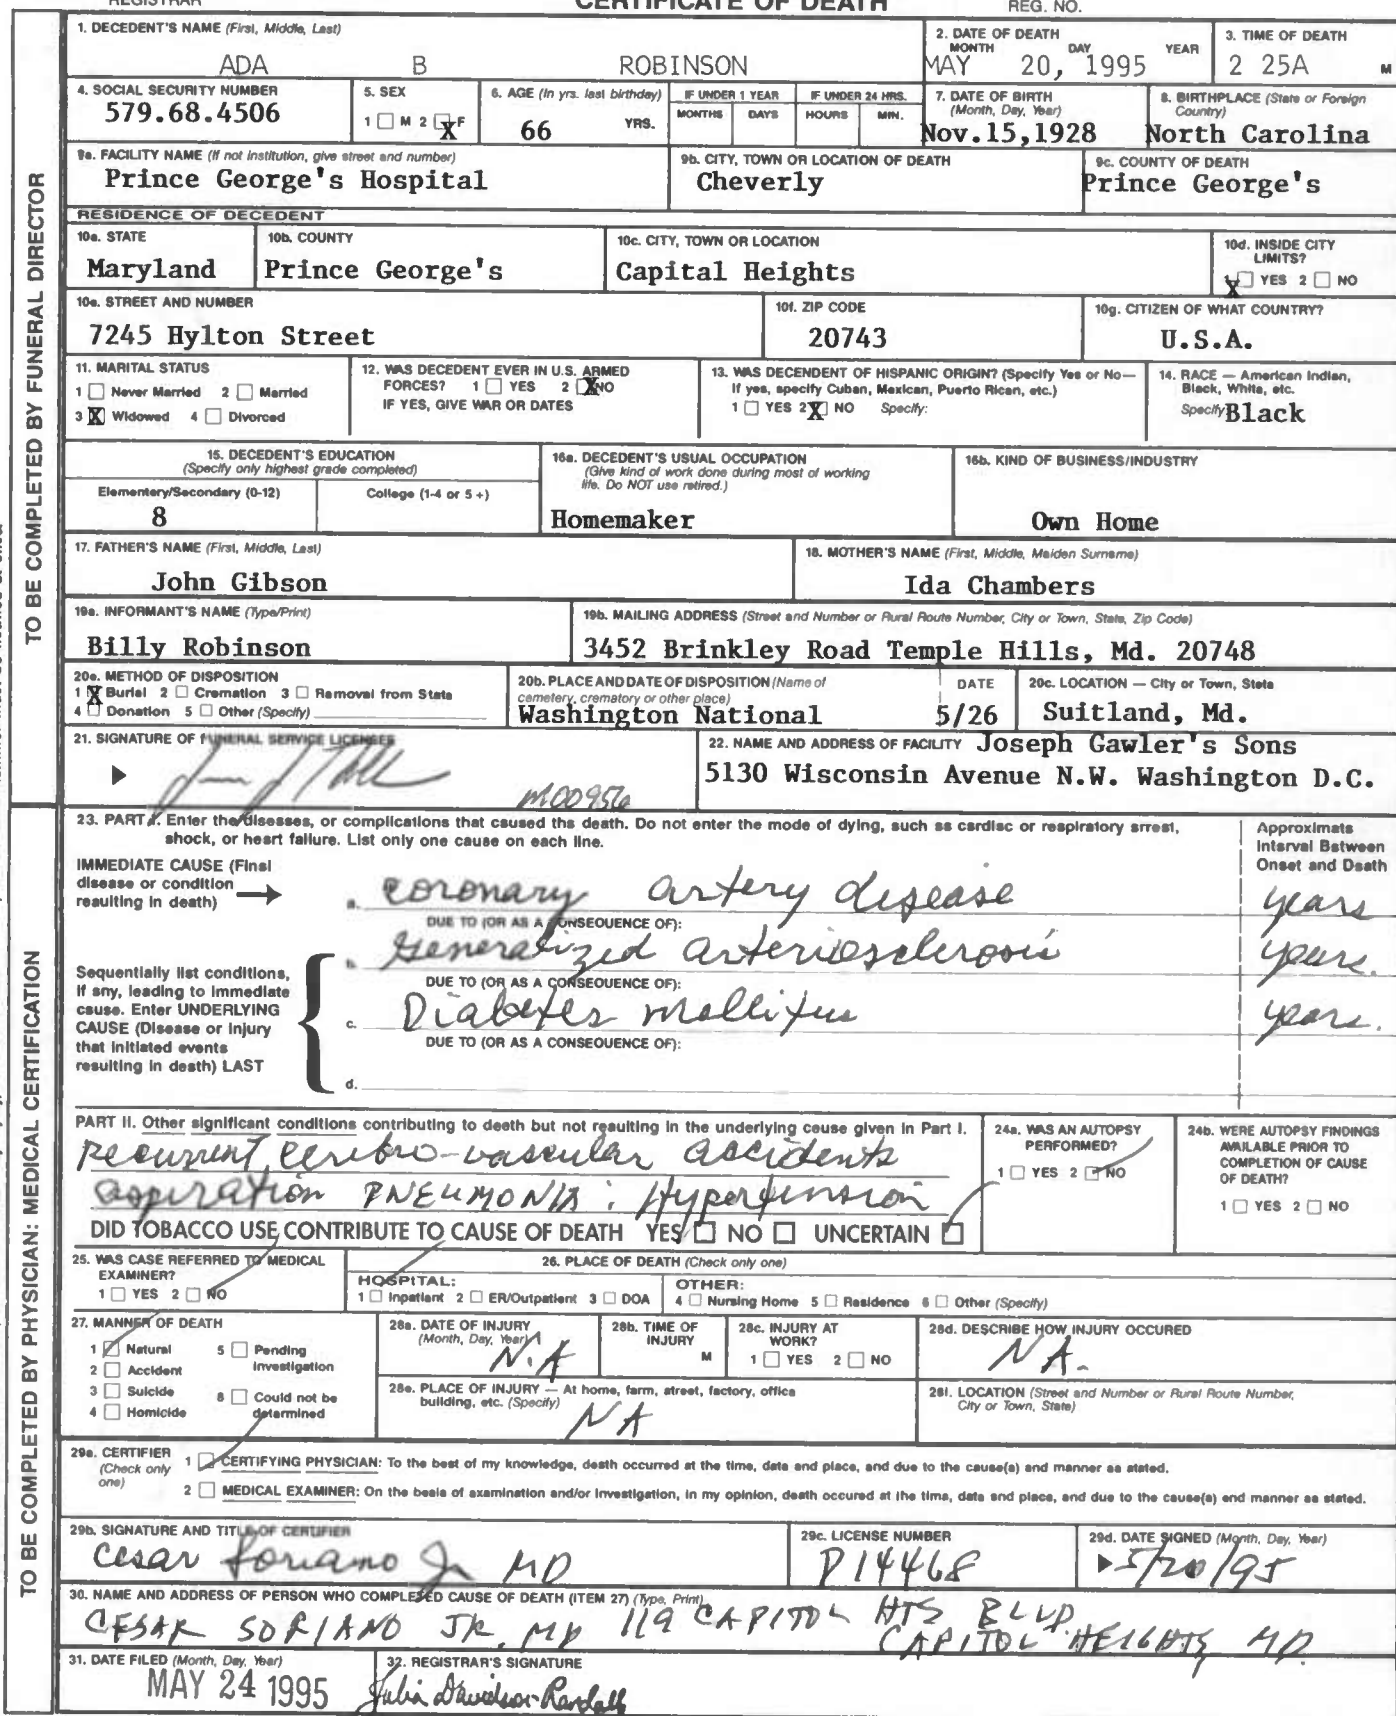 REGISTRAR CERTIFICATE OF DEATH REG. NO.
TO BE COMPLETED BY FUNERAL DIRECTOR
1. DECEDENT'S NAME (First, Middle, Last)
ADA B ROBINSON
2. DATE OF DEATH
MONTH DAY YEAR
MAY 20, 1995
3. TIME OF DEATH
2 25A M
4. SOCIAL SECURITY NUMBER
579.68.4506
5. SEX
1 ☐ M 2 ☒ F
6. AGE (In yrs. last birthday)
66 YRS.
IF UNDER 1 YEAR
MONTHS DAYS
IF UNDER 24 HRS.
HOURS MIN.
7. DATE OF BIRTH
(Month, Day, Year)
Nov.15,1928
8. BIRTHPLACE (State or Foreign
Country)
North Carolina
9a. FACILITY NAME (If not institution, give street and number)
Prince George's Hospital
9b. CITY, TOWN OR LOCATION OF DEATH
Cheverly
9c. COUNTY OF DEATH
Prince George's
RESIDENCE OF DECEDENT
10a. STATE
Maryland
10b. COUNTY
Prince George's
10c. CITY, TOWN OR LOCATION
Capital Heights
10d. INSIDE CITY
LIMITS?
1 ☒ YES 2 ☐ NO
10e. STREET AND NUMBER
7245 Hylton Street
10f. ZIP CODE
20743
10g. CITIZEN OF WHAT COUNTRY?
U.S.A.
11. MARITAL STATUS
1 ☐ Never Married 2 ☐ Married
3 ☒ Widowed 4 ☐ Divorced
12. WAS DECEDENT EVER IN U.S. ARMED
FORCES? 1 ☐ YES 2 ☒ NO
IF YES, GIVE WAR OR DATES
13. WAS DECENDENT OF HISPANIC ORIGIN? (Specify Yes or No—
If yes, specify Cuban, Mexican, Puerto Rican, etc.)
1 ☐ YES 2 ☒ NO Specify:
14. RACE — American Indian,
Black, White, etc.
Specify Black
15. DECEDENT'S EDUCATION
(Specify only highest grade completed)
Elementery/Secondary (0-12) College (1-4 or 5 +)
8
16a. DECEDENT'S USUAL OCCUPATION
(Give kind of work done during most of working
life. Do NOT use retired.)
Homemaker
16b. KIND OF BUSINESS/INDUSTRY
Own Home
17. FATHER'S NAME (First, Middle, Last)
John Gibson
18. MOTHER'S NAME (First, Middle, Maiden Surname)
Ida Chambers
19a. INFORMANT'S NAME (Type/Print)
Billy Robinson
19b. MAILING ADDRESS (Street and Number or Rural Route Number, City or Town, State, Zip Code)
3452 Brinkley Road Temple Hills, Md. 20748
20a. METHOD OF DISPOSITION
1 ☒ Burial 2 ☐ Cremation 3 ☐ Removal from State
4 ☐ Donation 5 ☐ Other (Specify)
20b. PLACE AND DATE OF DISPOSITION (Name of
cemetery, crematory or other place)
Washington National
DATE
5/26
20c. LOCATION — City or Town, State
Suitland, Md.
21. SIGNATURE OF FUNERAL SERVICE LICENSEE
M00956
22. NAME AND ADDRESS OF FACILITY Joseph Gawler's Sons
5130 Wisconsin Avenue N.W. Washington D.C.
TO BE COMPLETED BY PHYSICIAN: MEDICAL CERTIFICATION
23. PART I. Enter the diseases, or complications that caused the death. Do not enter the mode of dying, such as cardiac or respiratory arrest,
shock, or heart failure. List only one cause on each line.
Approximate
Interval Between
Onset and Death
IMMEDIATE CAUSE (Final
disease or condition
resulting in death)
a. coronary artery disease years
DUE TO (OR AS A CONSEQUENCE OF):
b. Generalized arteriosclerosis years.
DUE TO (OR AS A CONSEQUENCE OF):
c. Diabetes mellitus years.
DUE TO (OR AS A CONSEQUENCE OF):
d.
Sequentially list conditions,
if any, leading to immediate
cause. Enter UNDERLYING
CAUSE (Disease or Injury
that initiated events
resulting in death) LAST
PART II. Other significant conditions contributing to death but not resulting in the underlying cause given in Part I.
recurrent cerebro-vascular accidents
aspiration PNEUMONIA; Hypertension
DID TOBACCO USE CONTRIBUTE TO CAUSE OF DEATH YES ☐ NO ☐ UNCERTAIN ☑
24a. WAS AN AUTOPSY
PERFORMED?
1 ☐ YES 2 ☑ NO
24b. WERE AUTOPSY FINDINGS
AVAILABLE PRIOR TO
COMPLETION OF CAUSE
OF DEATH?
1 ☐ YES 2 ☐ NO
25. WAS CASE REFERRED TO MEDICAL
EXAMINER?
1 ☐ YES 2 ☑ NO
26. PLACE OF DEATH (Check only one)
HOSPITAL:
1 ☑ Inpatient 2 ☐ ER/Outpatient 3 ☐ DOA
OTHER:
4 ☐ Nursing Home 5 ☐ Residence 6 ☐ Other (Specify)
27. MANNER OF DEATH
1 ☑ Natural 5 ☐ Pending
Investigation
2 ☐ Accident
3 ☐ Suicide 8 ☐ Could not be
determined
4 ☐ Homicide
28a. DATE OF INJURY
(Month, Day, Year)
N.A
28b. TIME OF
INJURY
M
28c. INJURY AT
WORK?
1 ☐ YES 2 ☐ NO
28d. DESCRIBE HOW INJURY OCCURED
NA.
28e. PLACE OF INJURY — At home, farm, street, factory, office
building, etc. (Specify)
NA
28f. LOCATION (Street and Number or Rural Route Number,
City or Town, State)
29a. CERTIFIER
(Check only
one)
1 ☑ CERTIFYING PHYSICIAN: To the best of my knowledge, death occurred at the time, date and place, and due to the cause(s) and manner as stated.
2 ☐ MEDICAL EXAMINER: On the basis of examination and/or investigation, in my opinion, death occured at the time, date and place, and due to the cause(s) and manner as stated.
29b. SIGNATURE AND TITLE OF CERTIFIER
Cesar Soriano Jr MD
29c. LICENSE NUMBER
D14468
29d. DATE SIGNED (Month, Day, Year)
5/20/95
30. NAME AND ADDRESS OF PERSON WHO COMPLETED CAUSE OF DEATH (ITEM 27) (Type, Print)
CESAR SORIANO JR. MD 119 CAPITOL HTS BLVD.
CAPITOL HEIGHTS, MD.
31. DATE FILED (Month, Day, Year)
MAY 24 1995
32. REGISTRAR'S SIGNATURE
Julia Davidson-Randall